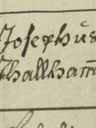 Josephus
Thallham̄